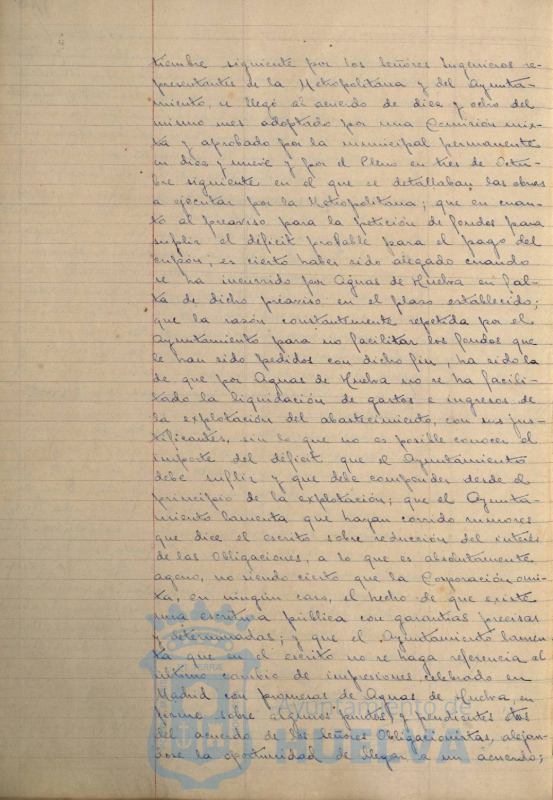 tiembre siguiente por los Señores Ingenieros re-
presentantes de la Metropolitana y del Ayunta-
miento, se llegó al acuerdo de diez y ocho del
mismo mes adoptado por una Comisión mix-
ta y aprobado por la municipal permanente
en diez y nueve y por el Pleno en tres de Octu-
bre siguiente en el que se detallaban las obras
a ejecutar por la Metropolitana; que en cuan-
to al preaviso para la petición de fondos para
suplir el déficit probable para el pago del
cupón, es cierto haber sido alegado cuando
se ha incurrido por Aguas de Huelva en fal-
ta de dicho preaviso en el plazo establecido;
que la razón constantemente repetida por el
Ayuntamiento para no facilitar los fondos que
le han sido pedidos con dicho fin, ha sido la
de que por Aguas de Huelva no se ha facili-
tado la liquidación de gastos e ingresos de
la explotación del abastecimiento, con sus jus-
tificantes, sin lo que no es posible conocer el
importe del déficit que el Ayuntamiento
debe suplir y que debe comprender desde el
principio de la explotación; que el Ayunta-
miento lamenta que hayan corrido rumores
que dice el escrito sobre reducción del interés
de las Obligaciones, a lo que es absolutamente
ageno, no siendo cierto que la Corporación omi-
ta, en ningún caso, el hecho de que existe
una escritura pública con garantías precisas
y determinadas; y que el Ayuntamiento lamen-
ta que en el escrito no se haga referencia al
último cambio de impresiones celebrado en
Madrid con personas de Aguas de Huelva, en
firme sobre algunos puntos, y pendientes otros
del acuerdo de los Señores Obligacionistas, alejan-
dose la oportunidad de llegar a un acuerdo;
Ayuntamiento de
HUELVA